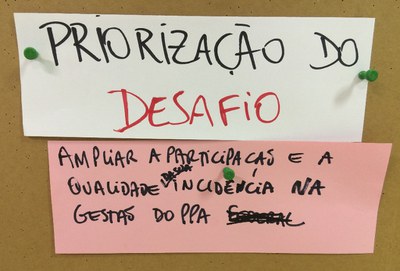 PRIORIZAÇÃO DO
DESAFIO
AMPLIAR A PARTICIPAÇÃO E A
QUALIDADE DA SUA INCIDÊNCIA NA
GESTÃO DO PPA